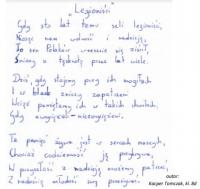 „Legioniści"
Gdy sto lat temu szli legioniści,
Niosąc nam wolność i nadzieję,
To sen Polaków wreszcie się ziścił,
Śniony z tęsknotą przez lat wiele.
Dziś, gdy stajemy przy ich mogiłach
I w blask zniczy zapatrzeni
Wciąż pamiętamy ich w takich chwilach,
Gdy zwyciężali - niezwyciężeni.
Ta pamięć żywa jest w sercach naszych,
Chociaż codzienność ją przykrywa,
W przyszłość z nadzieją możemy patrzeć,
Z nadzieją młodość
autor:
Kacper Tomczak, kl. 8d